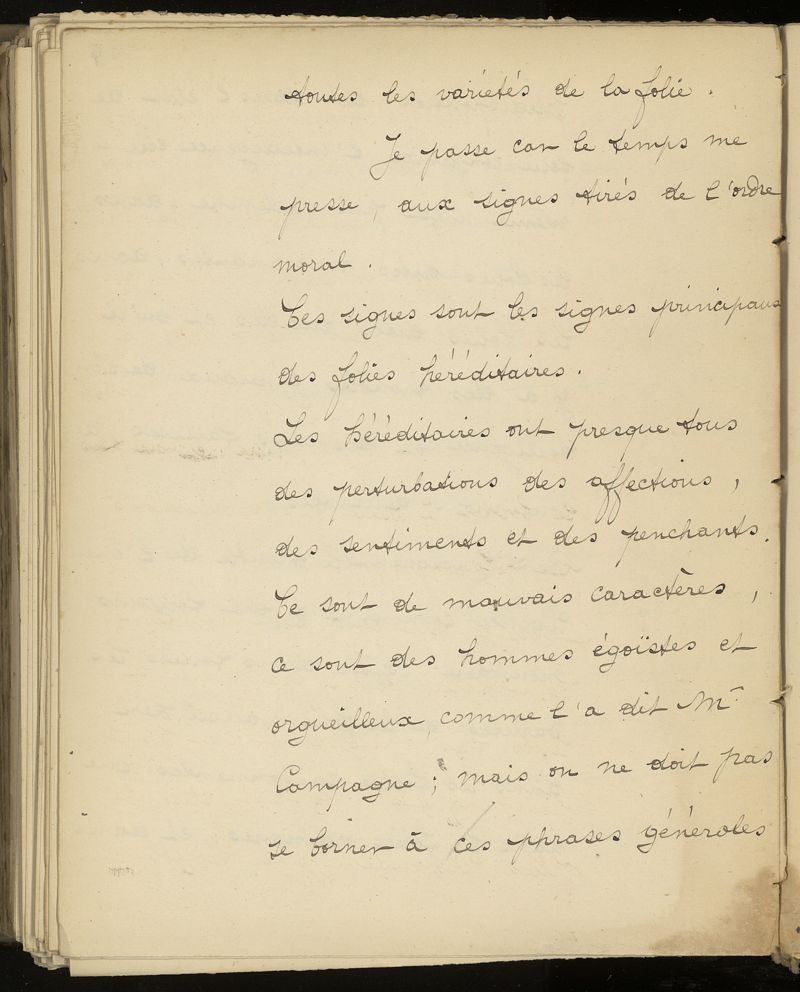 toutes les variétés de la folie.
Je passe car le temps me
presse, aux signes tirés de l'ordre
moral.
Ces signes sont les signes principaux
des folies héréditaires.
Les héréditaires ont presque tous
des perturbations des affections,
des sentiments et des penchants.
Ce sont de mauvais caractères,
ce sont des hommes égoïstes et
orgueilleux, comme l'a dit Mr
Campagne; mais on ne doit pas
se borner à ces phrases générales